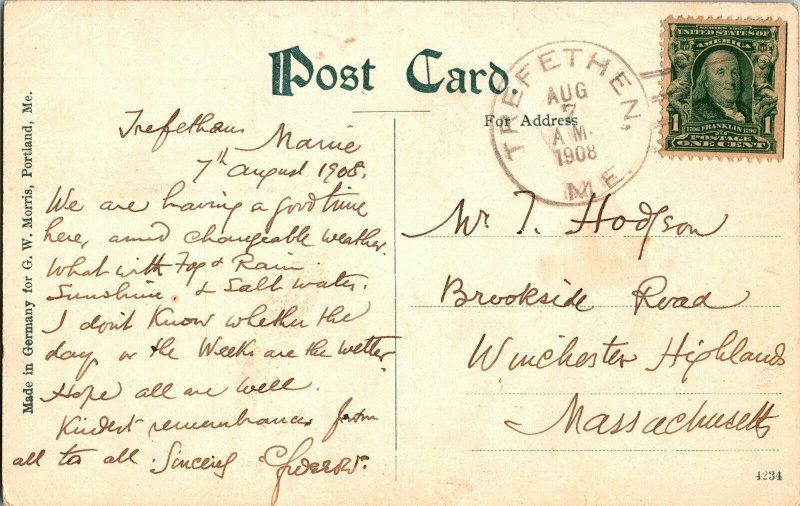 Post Card.
For Address
Made in Germany for G. W. Morris, Portland, Me.
TREFETHEN, ME.
AUG
7
A.M.
1908
SERIES 1902
UNITED STATES OF
AMERICA
1706 FRANKLIN 1790
1 1
POSTAGE
ONE CENT
Trefethans
Maine
7th August 1908.
We are having a good time
here, amid changeable weather.
What with Fog & Rain
Sunshine & Salt water.
I don't Know whether the
days or the Weeks are the wetter
Hope all are well.
Kindest remembrances from
all to all. Sincerely
Mr T. Hodgson
Brookside Road
Winchester Highlands
Massachusetts
4234